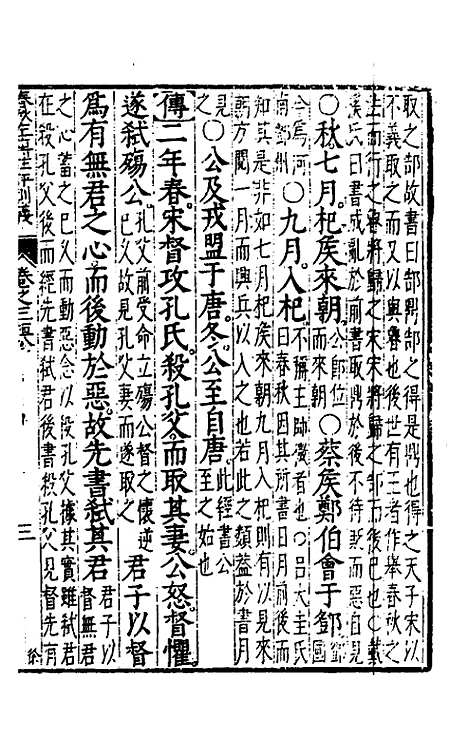 取之郜故書曰郜鼎郜之得是鼎也得之天子宋以
不義取之而又以與魯也後世有王者作舉春秋之
法而行之魯將歸之宋宋將歸之郜而後已也〇戴
溪氏曰書成亂於前書取鼎於後不待貶而惡自見
〇秋七月杞侯來朝公即位而來朝〇蔡侯鄭伯會于鄧鄧國
今為河南鄧州〇九月入杞不稱主帥微者也〇呂大圭氏曰春秋因其所書日月前後而
知其是非如七月杞侯來朝九月入杞則有以見來
朝方閱一月而興兵以入之也於此之類蓋於書月
見之〇公及戎盟于唐冬公至自唐此經書公至之始也
傳二年春宋督攻孔氏殺孔父而取其妻公怒督懼
遂弑殤公孔父前受命立殤公督之懷逆已久故見孔父妻而遂取之君子以督
為有無君之心而後動於惡故先書弑其君君子以督無君
之心蓄之已久而動惡念以殺孔父據其實雖弑君
在殺孔父後而經先書弑君後書殺孔父見督先有
卷之三
三
徐